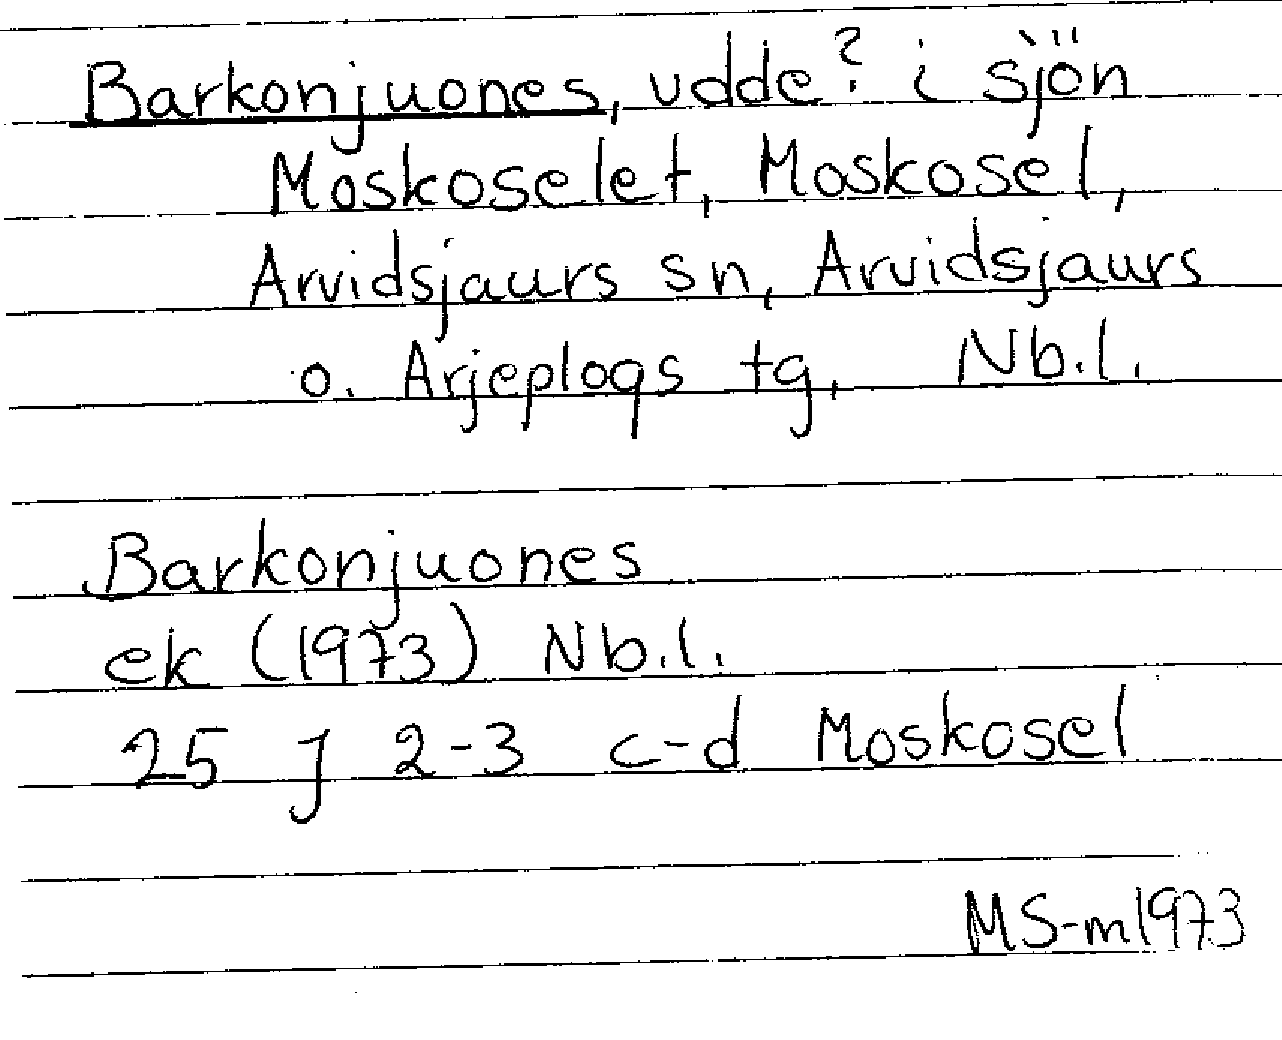 Barkonjuones, udde? i sjön
Moskoselet, Moskosel,
Arvidsjaurs sn, Arvidsjaurs
o. Arjeplogs tg, Nb.l.
Barkonjuones
ek (1973) Nb.l.
25 J 2-3 c-d Moskosel
MS-m1973